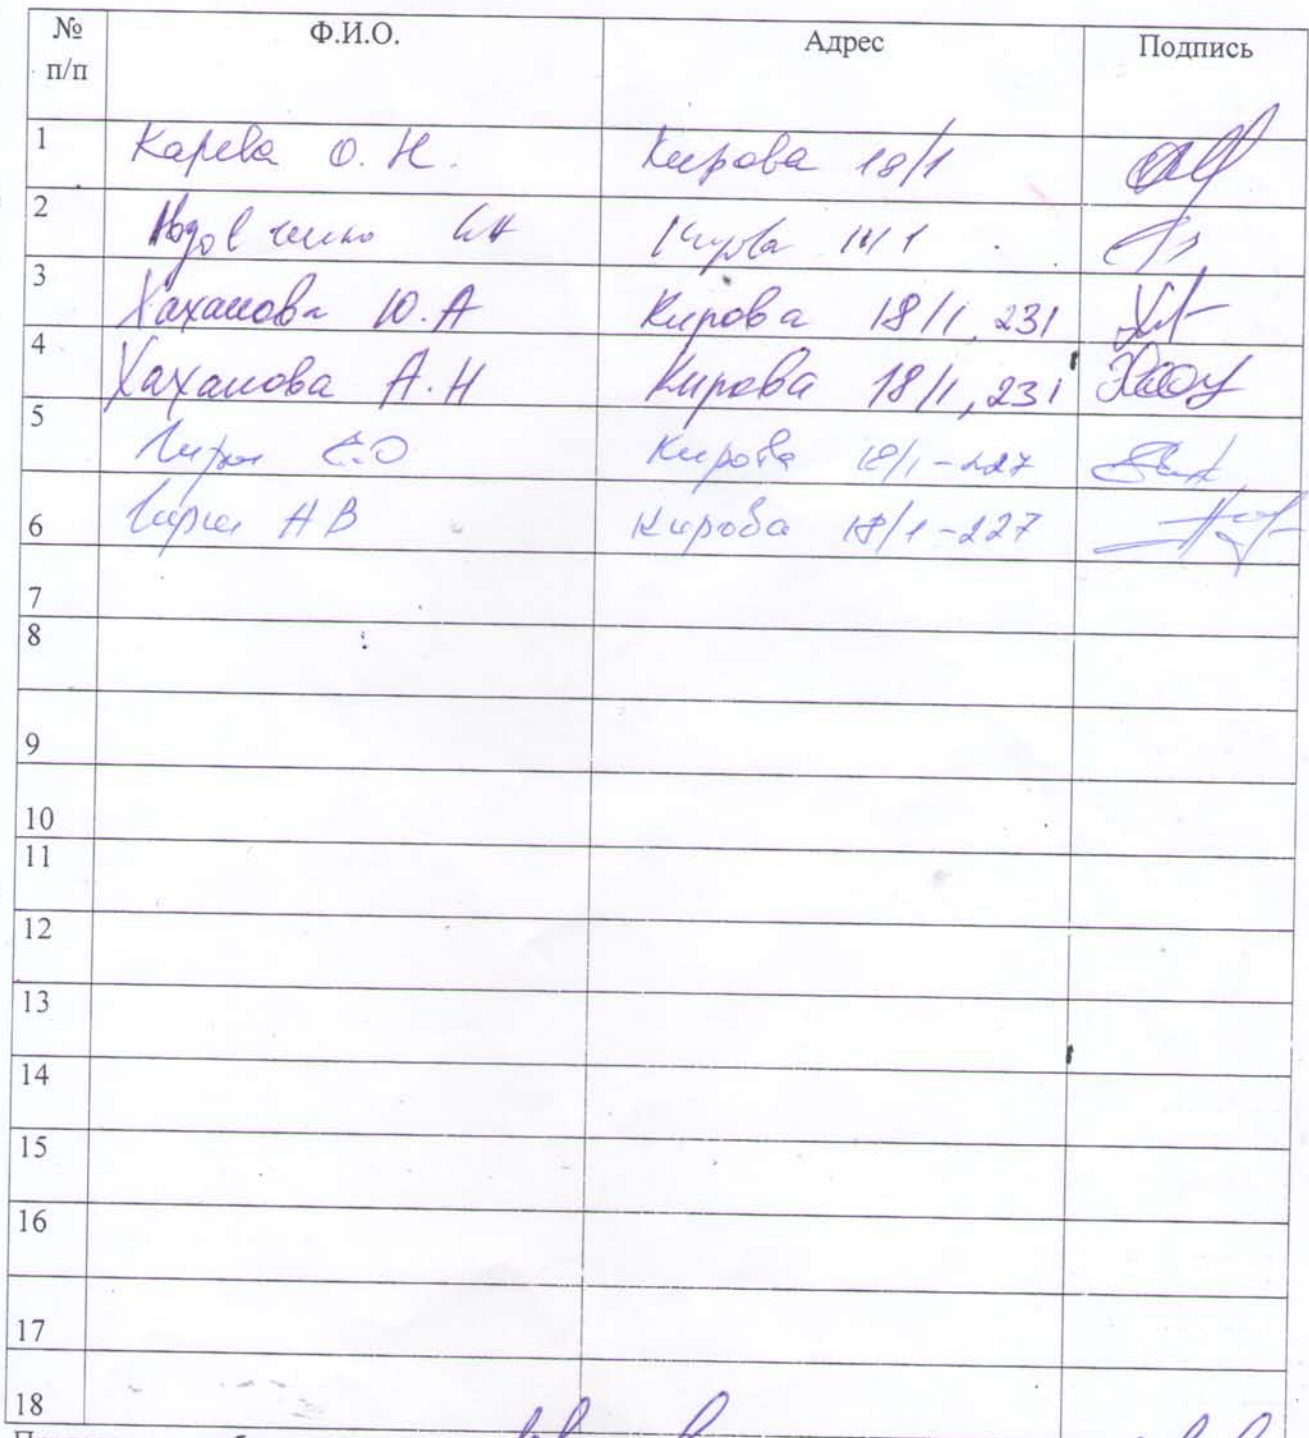 № п/п Ф.И.О. Адрес Подпись
1 Карева О.Н. Кирова 18/1
2 Кирова 1
3 Хаханова Ю.А Кирова 18/1, 231
4 Хаханова А.Н Кирова 18/1, 231
5 Кирова 18/1-227
6 А В Кирова 18/1-227
7
8
9
10
11
12
13
14
15
16
17
18